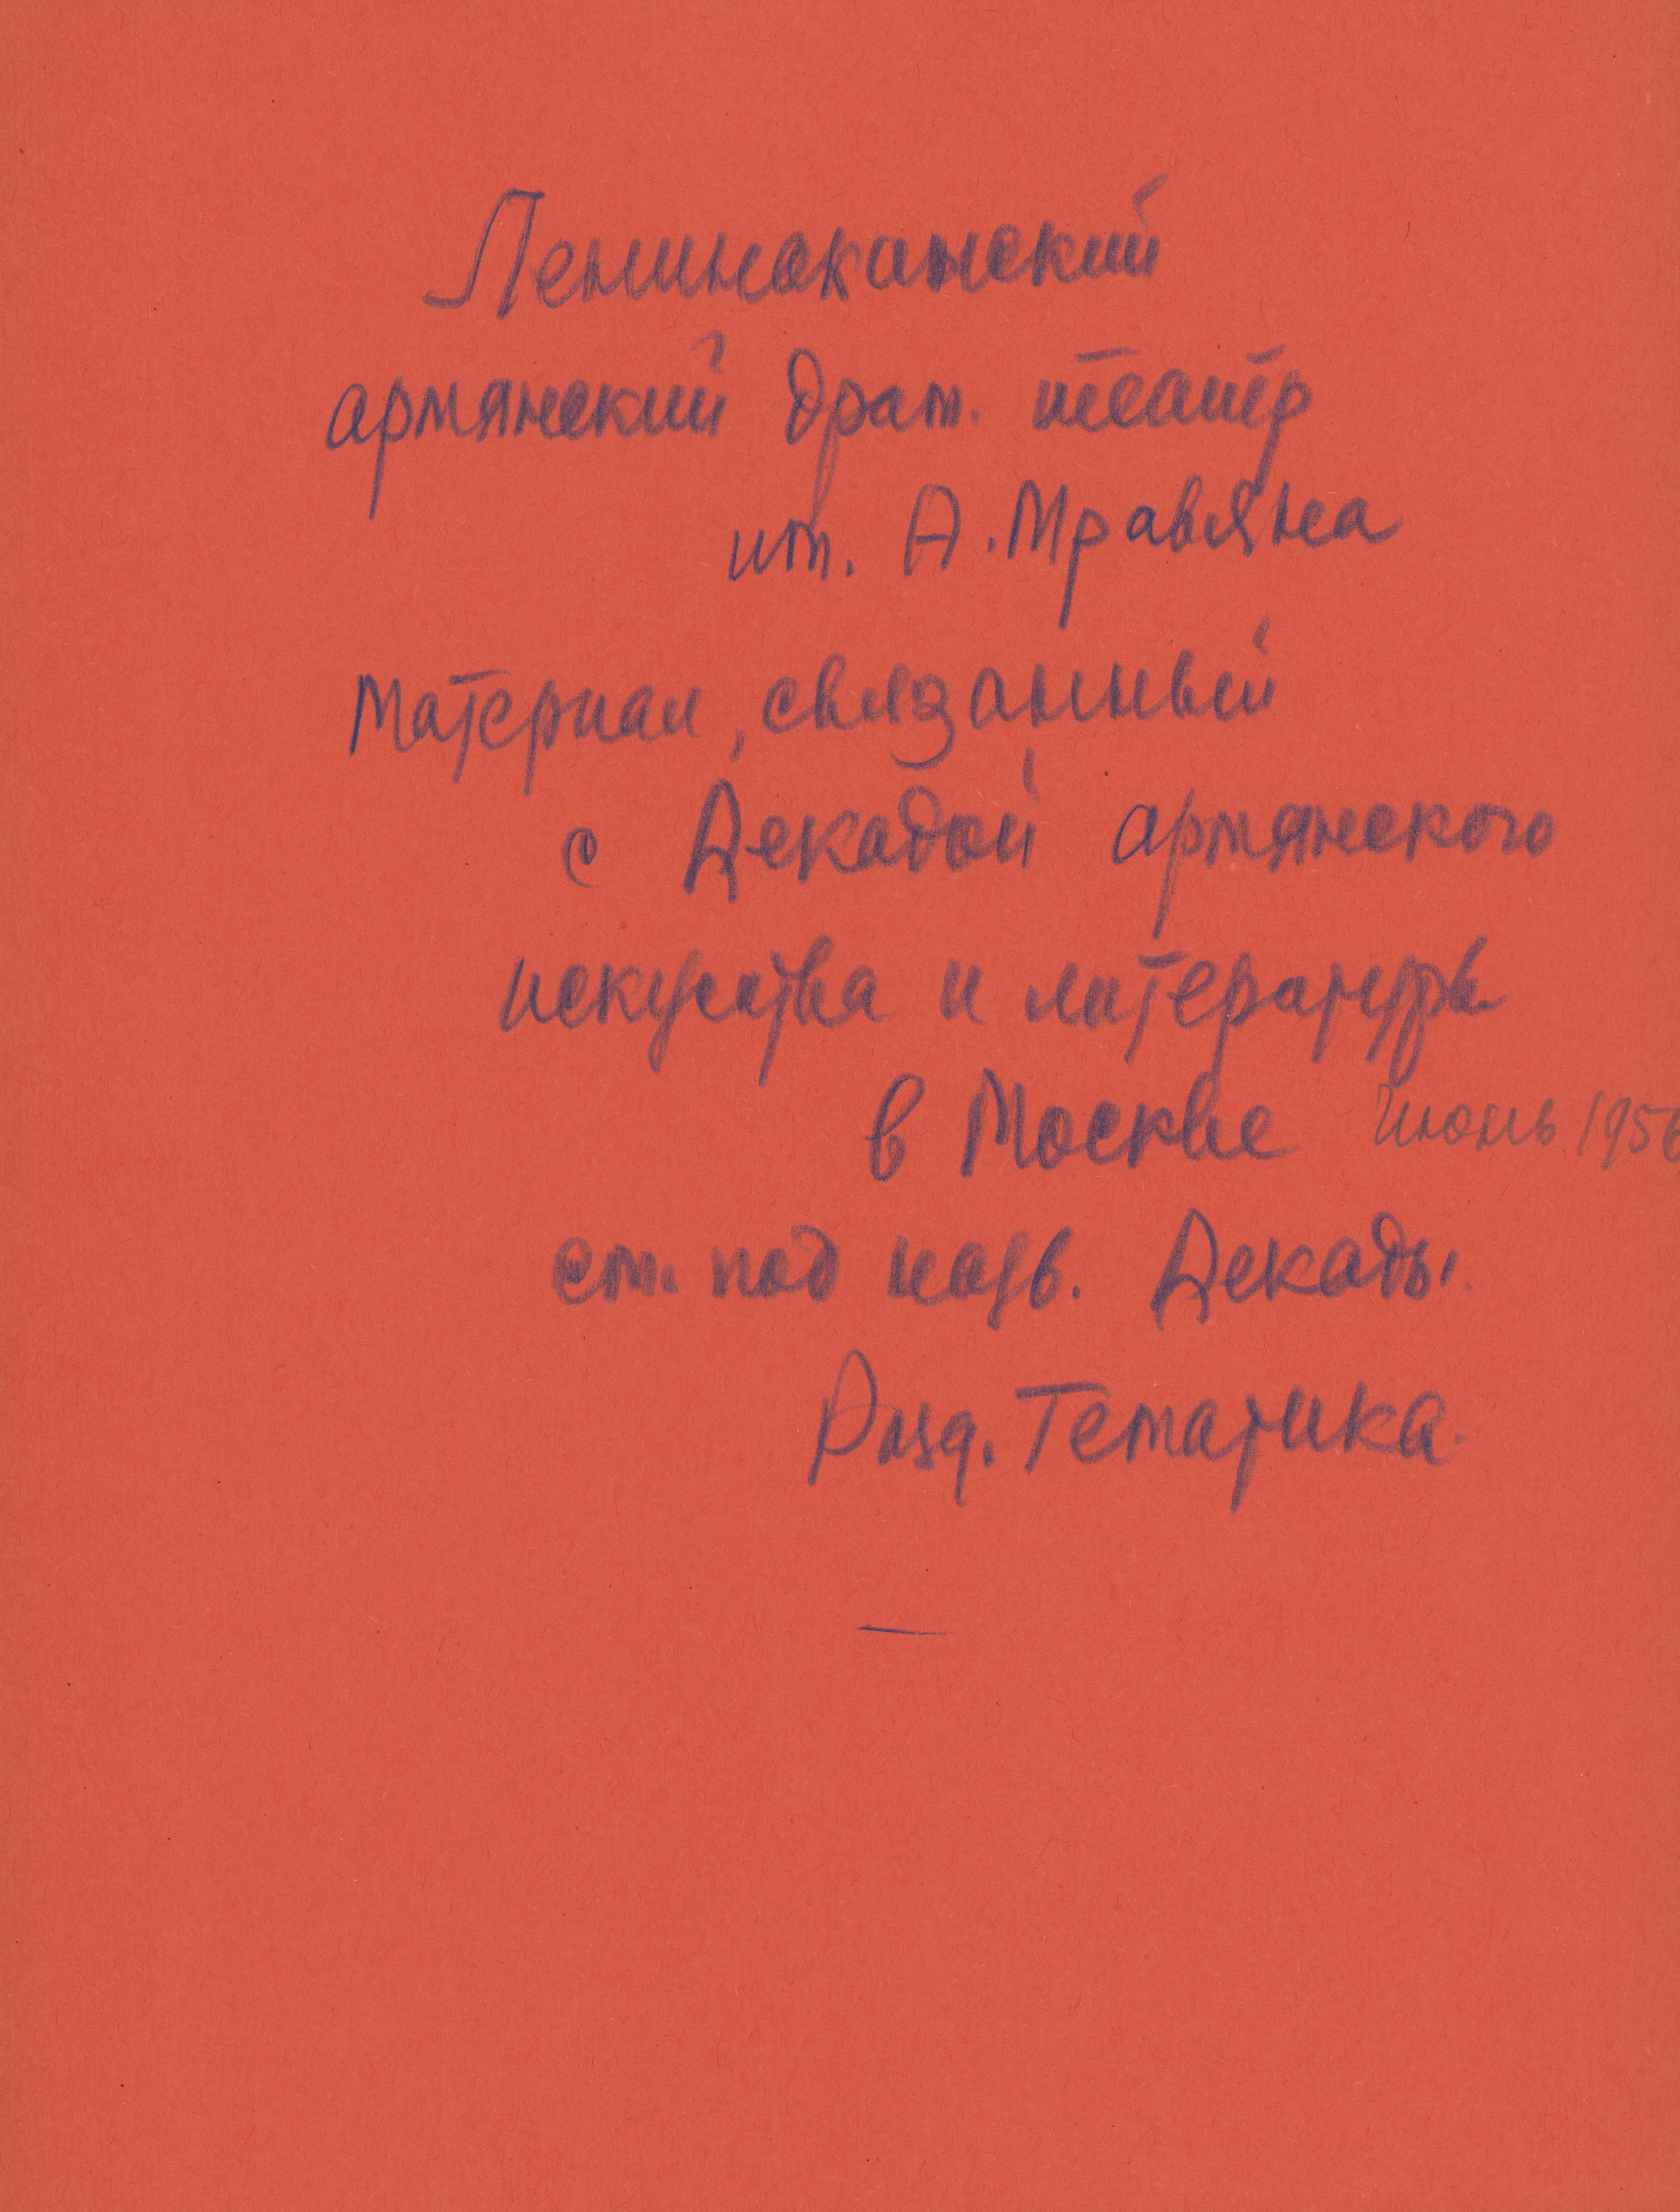 Ленинаканский
армянский драм. театр
им. А. Мравяна
Материал, связанный
с Декадой армянского
искусства и литературы
в Москве Июнь 1956
см. под назв. Декады.
Разд. Тематика.